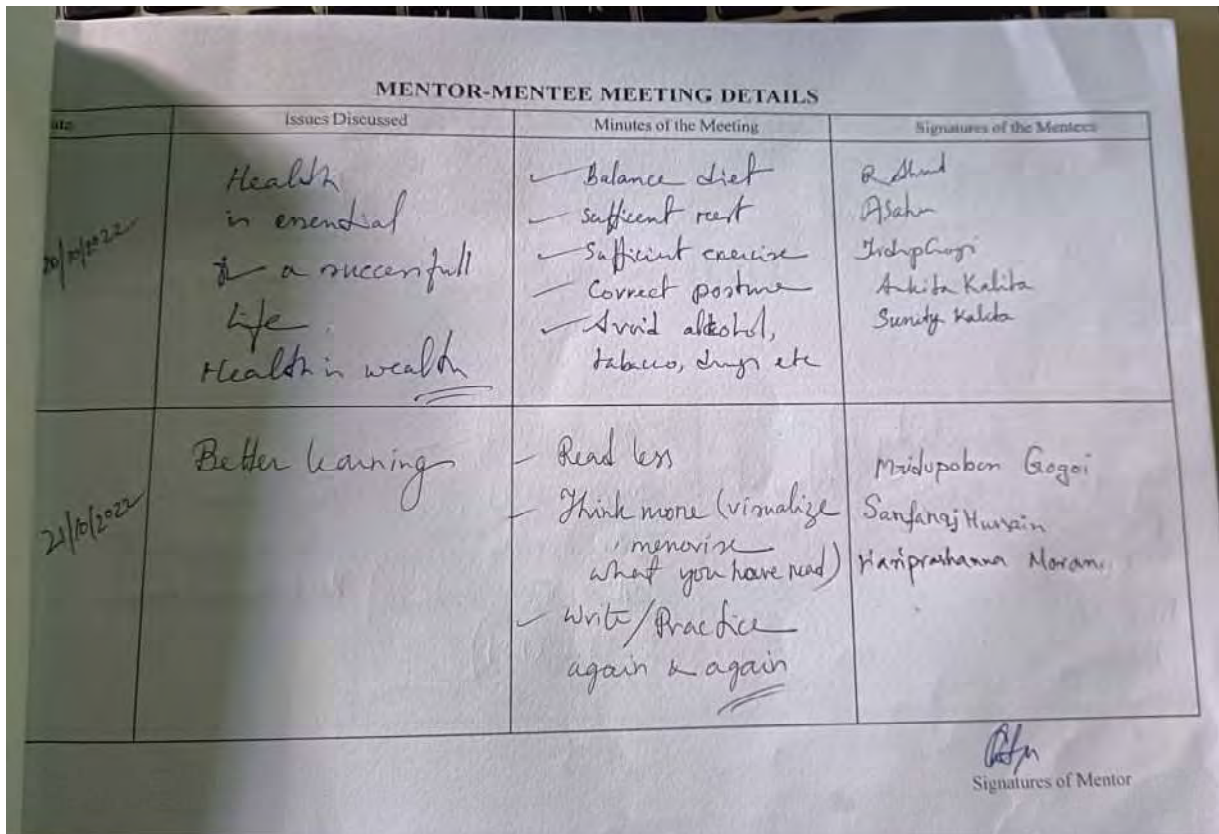 MENTOR-MENTEE MEETING DETAILS
Issues Discussed
Minutes of the Meeting
Signatures of the Mentees
Health
is essential
a successfull
Life.
Health is wealth
- Balance diet
- Sufficent rest
- Sufficient exercise
- Correct posture
- Avoid alkohol,
tabacco, drugs etc
Ankita Kalita
Sunity Kalita
21/10/2022
Better learning
- Read less
- Think more (visualize
, memorise
what you have read)
- Write/Practice
again & again
Mridupoban Gogoi
Sanfaraj Hussain
Hariprashanna Moran
Signatures of Mentor